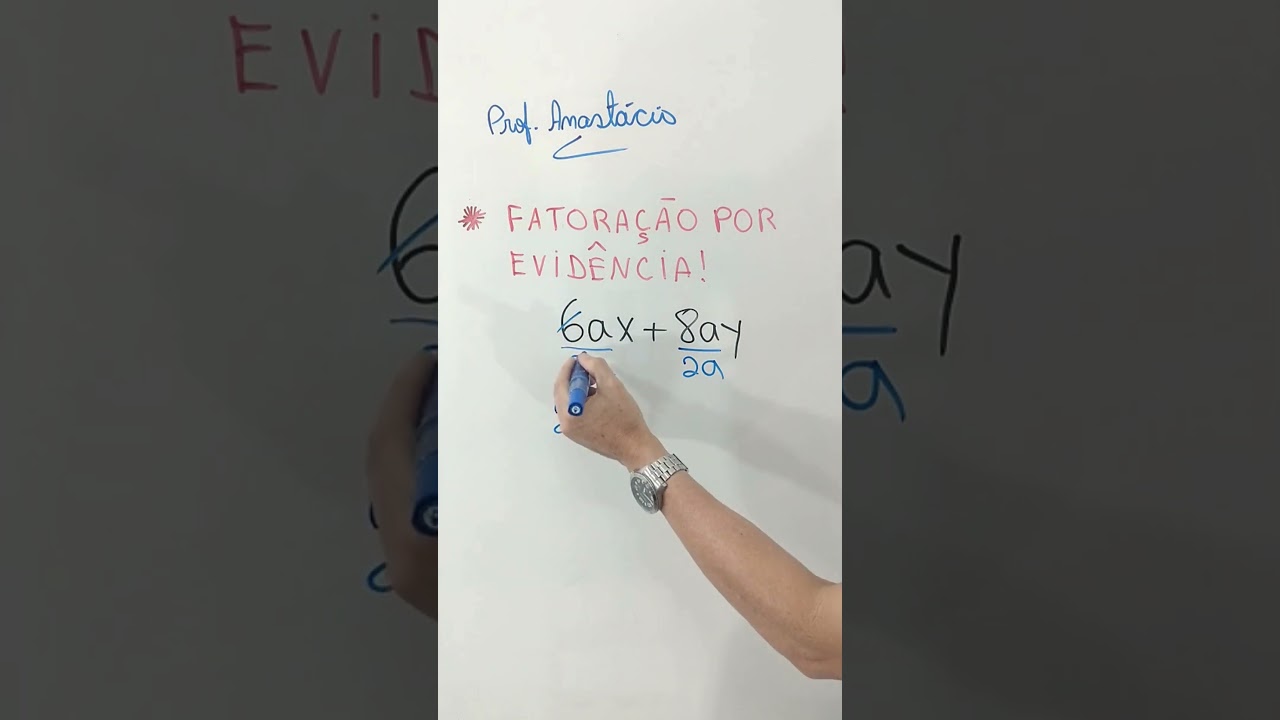 Prof. Anastácio
FATORAÇÃO POR
EVIDÊNCIA!
6ax + 8ay
2a